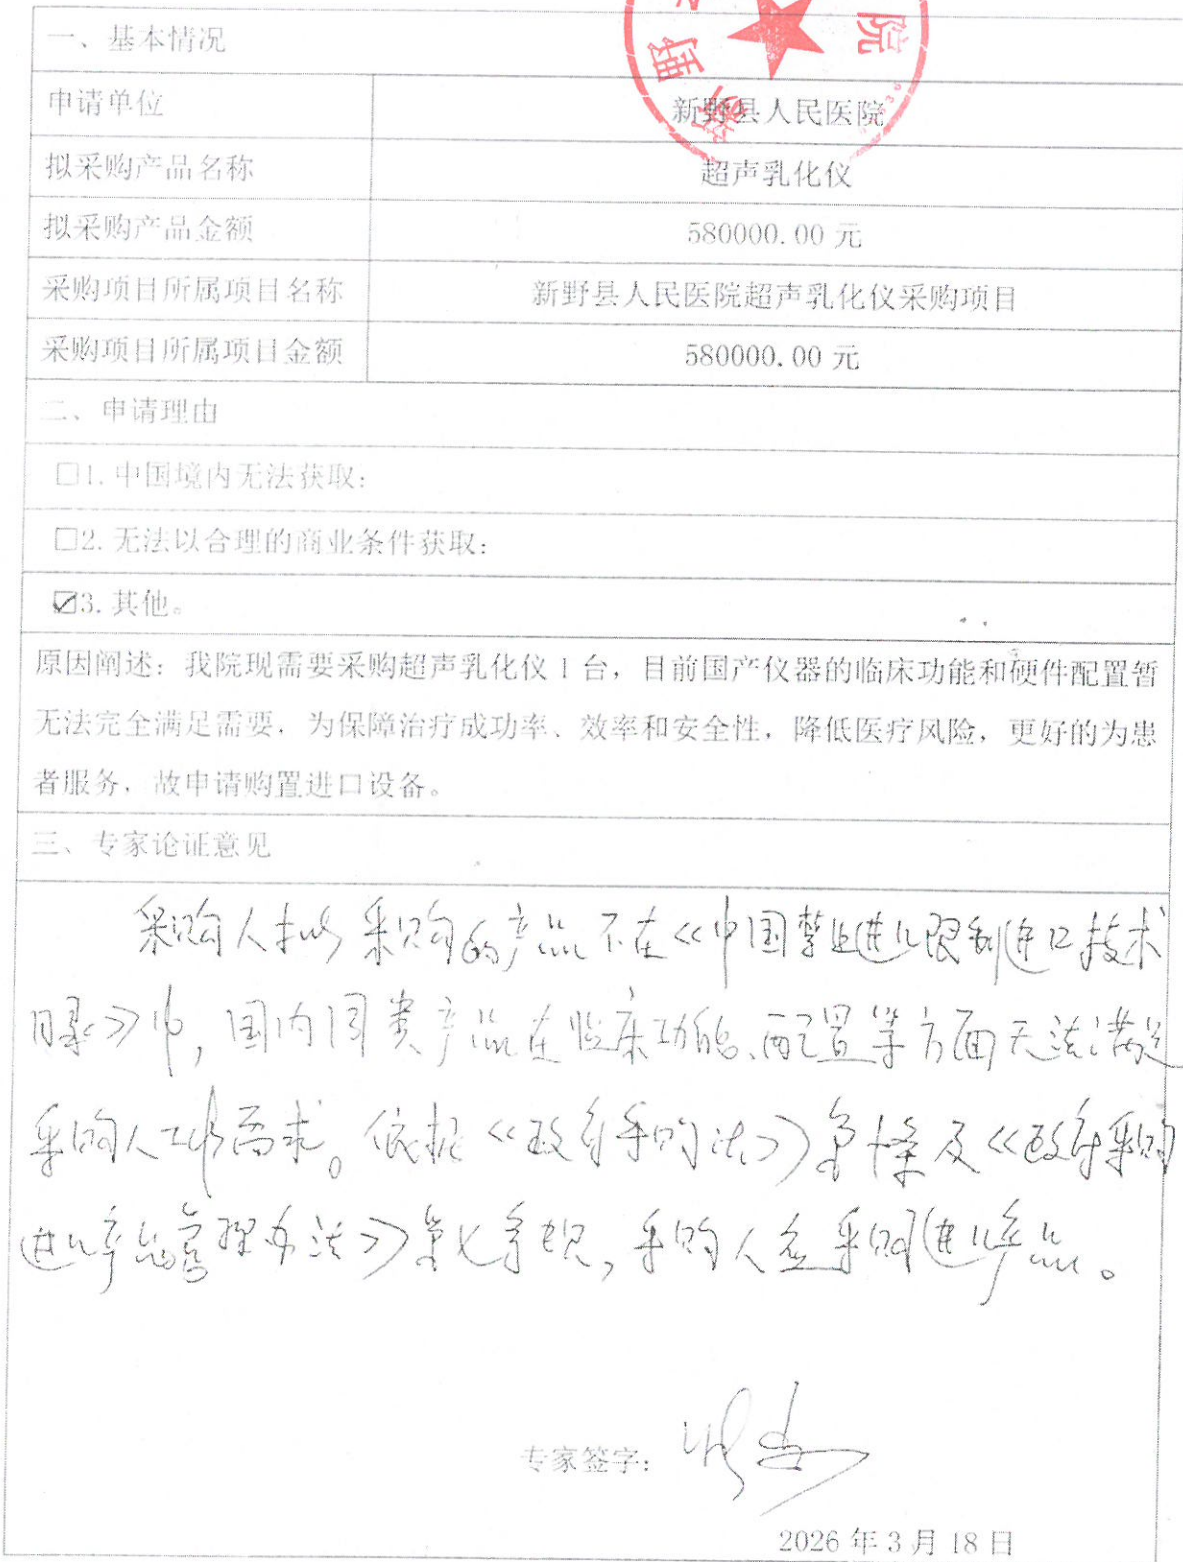 院
新野
一、基本情况
申请单位 新野县人民医院
拟采购产品名称 超声乳化仪
拟采购产品金额 580000.00 元
采购项目所属项目名称 新野县人民医院超声乳化仪采购项目
采购项目所属项目金额 580000.00 元
二、申请理由
☐1. 中国境内无法获取:
☐2. 无法以合理的商业条件获取:
☑3. 其他。
原因阐述：我院现需要采购超声乳化仪 1 台，目前国产仪器的临床功能和硬件配置暂
无法完全满足需要，为保障治疗成功率、效率和安全性，降低医疗风险，更好的为患
者服务，故申请购置进口设备。
三、专家论证意见
采购人拟采购的产品不在《中国禁止进口限制进口技术
目录》中，国内同类产品在临床功能、配置等方面无法满足
采购人工作需求。依据《政府采购法》第十条及《政府采购
进口产品管理办法》第 ，采购人 采购进口产品。
专家签字：
2026 年 3 月 18 日